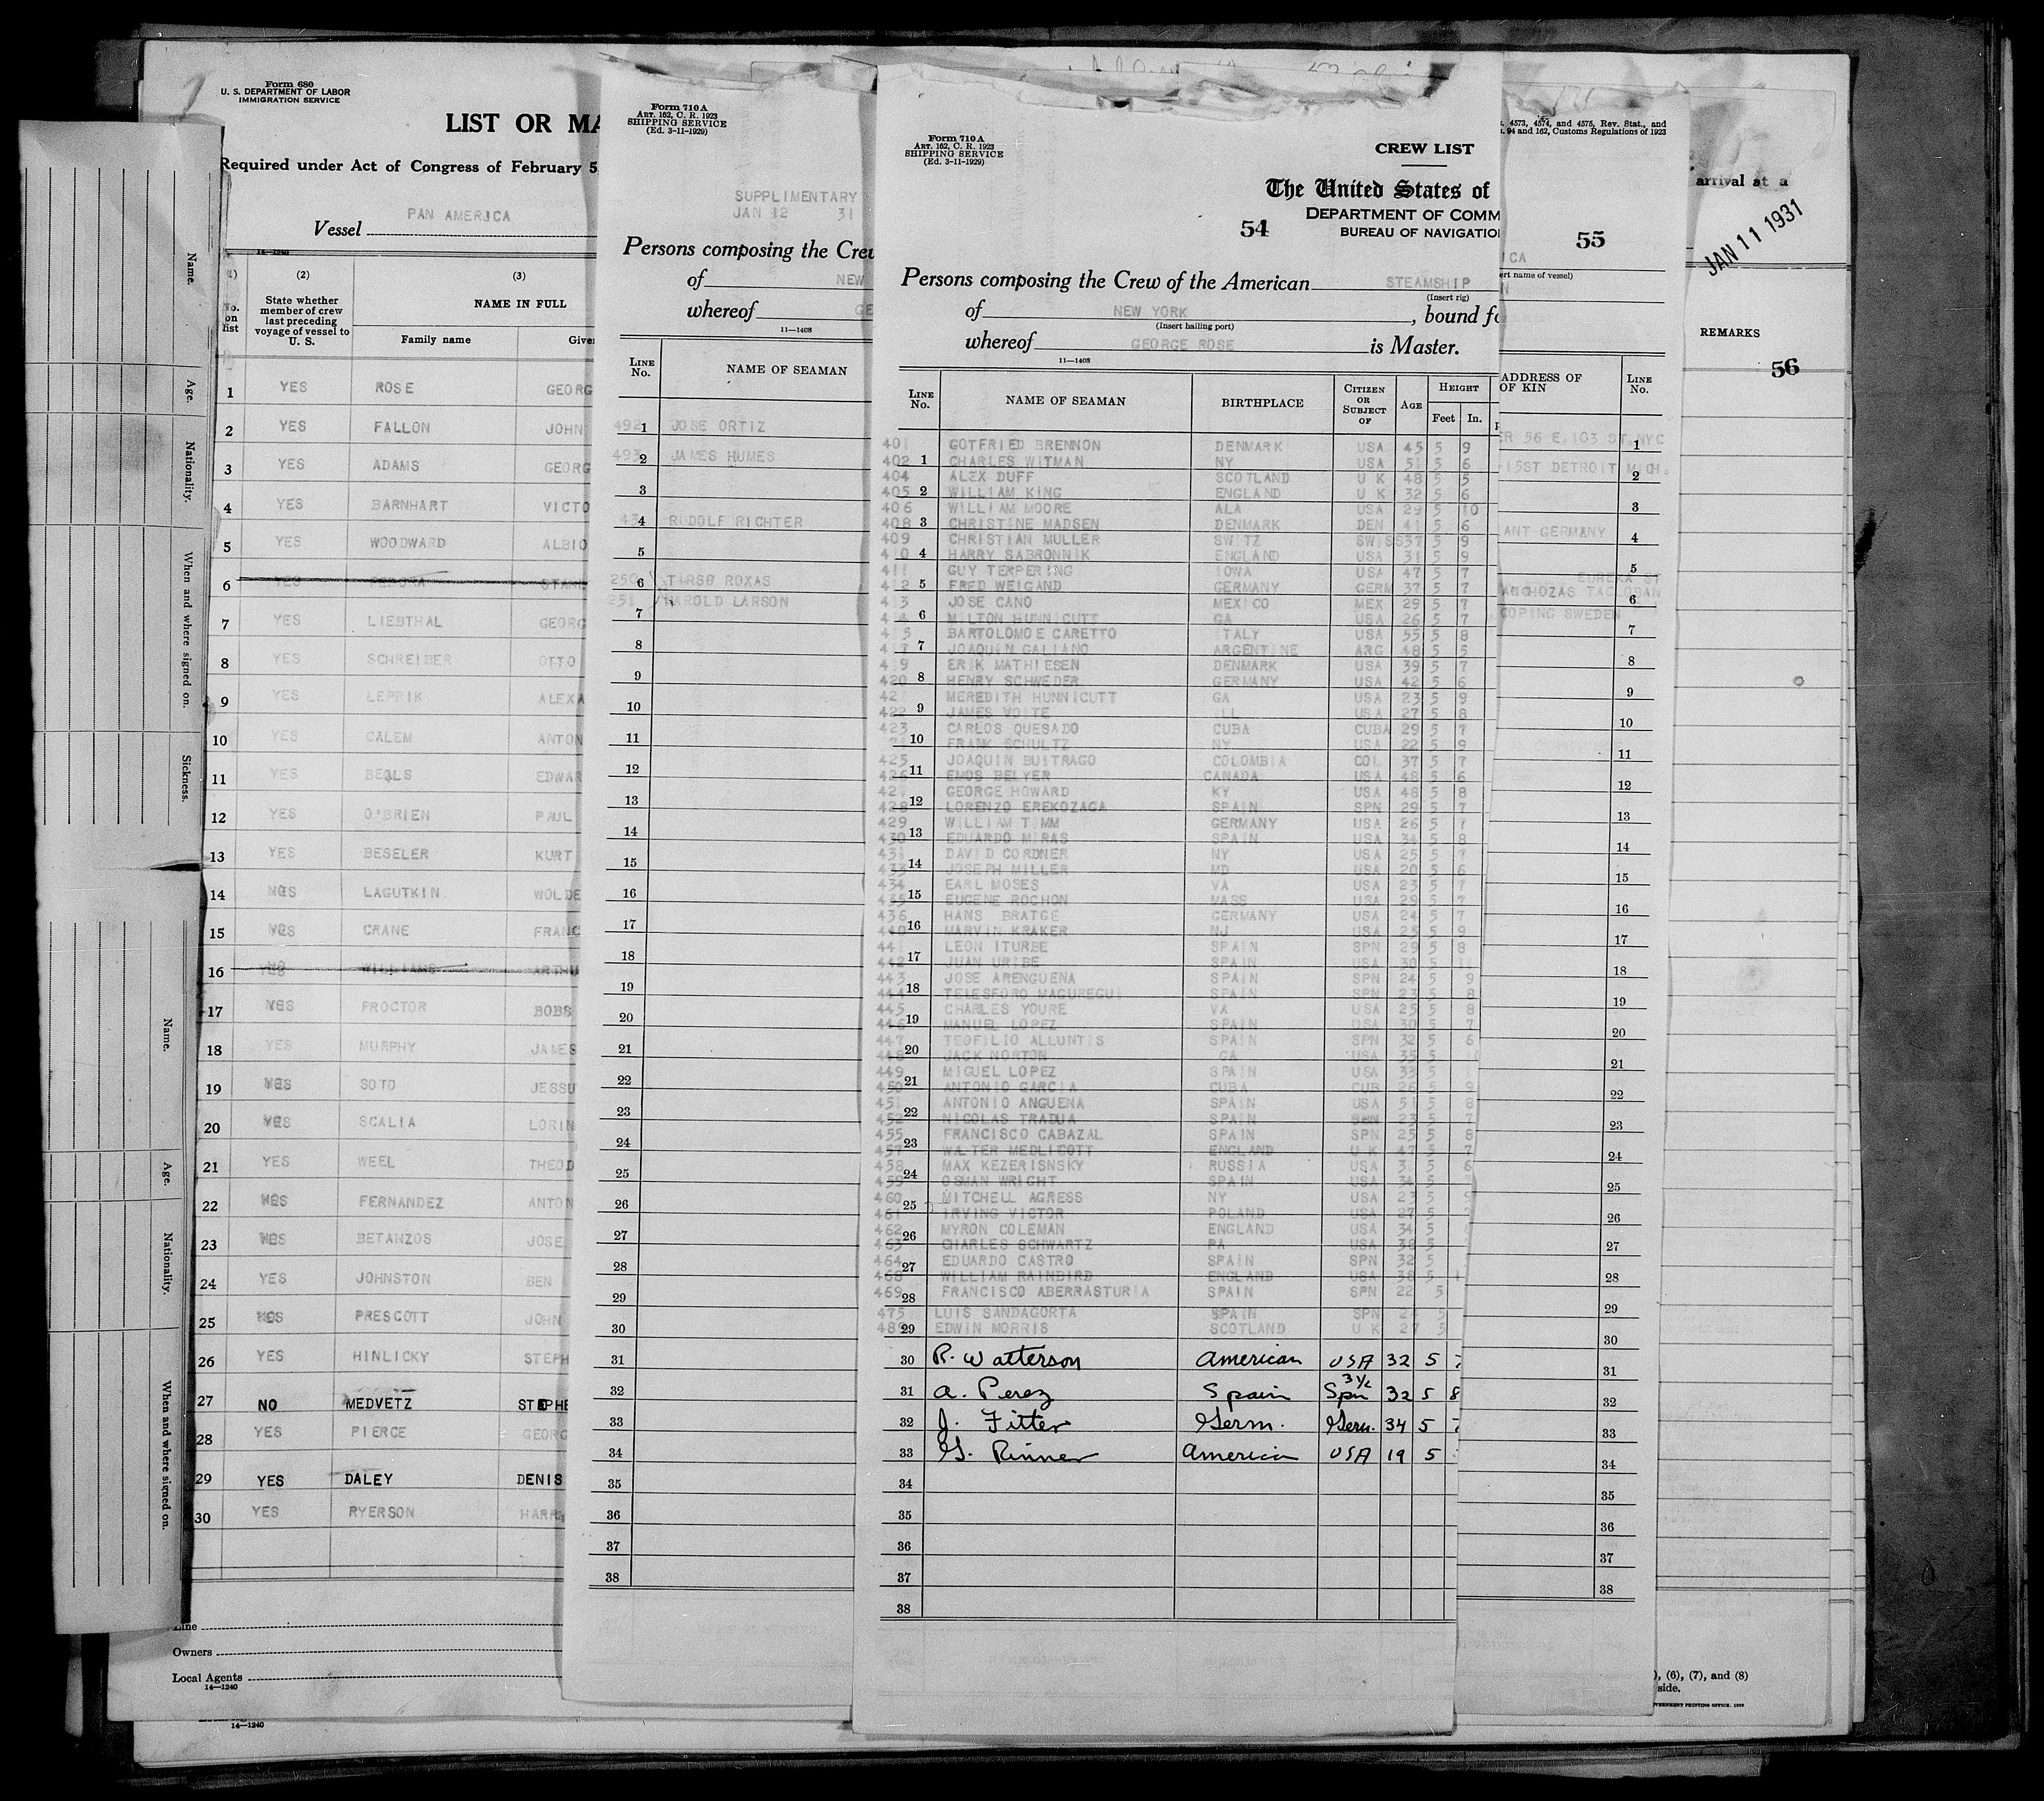 Form 680
U. S. DEPARTMENT OF LABOR
IMMIGRATION SERVICE
LIST OR MA
Required under Act of Congress of February 5
Vessel PAN AMERICA
14—1240
(2) (3)
No. on list
State whether member of crew last preceding voyage of vessel to U. S.
NAME IN FULL
Family name Give
1 YES ROSE GEORG
2 YES FALLON JOHN
3 YES ADAMS GEORG
4 YES BARNHART VICTO
5 YES WOODWARD ALBIO
6 YES
7 YES LIEBTHAL GEORG
8 YES SCHREIBER OTTO
9 YES LEPPIK ALEXA
10 YES CALEM ANTON
11 YES BEALS EDWAR
12 YES O'BRIEN PAUL
13 YES BESELER KURT
14 LAGUTKIN WOLDE
15 CRANE FRANC
16 WILLIAMS ARTHU
17 PROCTOR BOBS
18 YES MURPHY JAMES
19 SOTO JESSU
20 SCALIA LORIN
21 YES WEEL THEOD
22 FERNANDEZ ANTON
23 BETANZOS JOSE
24 YES JOHNSTON BEN
25 PRESCOTT JOHN
26 YES HINLICKY STEPH
27 NO MEDVETZ STEPHE
28 YES PIERCE GEORG
29 YES DALEY DENIS
30 YES RYERSON HARR
Line
Owners
Local Agents
14—1240
14—1240
Name.
Age.
Nationality.
When and where signed on.
Sickness.
Name.
Age.
Nationality.
When and where signed on.
Form 710 A
ART. 162, C. R. 1923
SHIPPING SERVICE
(Ed. 3-11-1929)
SUPPLIMENTARY
JAN 12 31
Persons composing the Crew
of NEW
whereof GE
11—1408
LINE No. NAME OF SEAMAN
492 1 JOSE ORTIZ
493 2 JAMES HUMES
3
4 RUDOLF RICHTER
5
250 6 TARSO ROXAS
251 7 HAROLD LARSON
8
9
10
11
12
13
14
15
16
17
18
19
20
21
22
23
24
25
26
27
28
29
30
31
32
33
34
35
36
37
38
Form 710 A
ART. 162, C. R. 1923
SHIPPING SERVICE
(Ed. 3-11-1929)
CREW LIST
The United States of
DEPARTMENT OF COMM
BUREAU OF NAVIGATIO
54
Persons composing the Crew of the American STEAMSHIP
(Insert rig)
of NEW YORK, bound fo
(Insert hailing port)
whereof GEORGE ROSE is Master.
11—1408
LINE No. NAME OF SEAMAN BIRTHPLACE CITIZEN OR SUBJECT OF AGE HEIGHT Feet In.
401 GOTFRIED BRENNON DENMARK USA 45 5 9
402 1 CHARLES WITMAN NY USA 51 5 6
404 ALEX DUFF SCOTLAND U K 48 5 5
405 2 WILLIAM KING ENGLAND U K 32 5 6
406 WILLIAM MOORE ALA USA 29 5 10
408 3 CHRISTINE MADSEN DENMARK DEN 41 5 6
409 CHRISTIAN MULLER SWITZ SWISS 37 5 9
410 4 HARRY SABRONNIK ENGLAND USA 31 5 9
411 GUY TEMPERING IOWA USA 47 5 7
412 5 FRED WEIGAND GERMANY GERM 37 5 7
413 JOSE CANO MEXICO MEX 29 5 7
414 6 MILTON HUNNICUTT GA USA 26 5 7
415 BARTOLOMOE CARETTO ITALY USA 55 5 8
417 7 JOAQUIN GALIANO ARGENTINE ARG 48 5 5
419 ERIK MATHIESEN DENMARK USA 39 5 7
420 8 HENRY SCHWEDER GERMANY USA 42 5 6
421 MEREDITH HUNNICUTT GA USA 23 5 9
422 9 JAMES VOITE ILL USA 27 5 8
423 CARLOS QUESADO CUBA CUBA 29 5 7
10 FRANK SCHULTZ NY USA 22 5 9
425 JOAQUIN BUITRAGO COLOMBIA COL 37 5 7
426 11 EMOS BELYER CANADA USA 48 5 6
427 GEORGE HOWARD KY USA 48 5 8
428 12 LORENZO EREKOZAGA SPAIN SPN 29 5 7
429 WILLIAM TIMM GERMANY USA 26 5 7
430 13 EDUARDO MIRAS SPAIN USA 34 5 8
431 DAVID CORDNER NY USA 25 5 7
433 14 JOSEPH MILLER MD USA 20 5 6
434 EARL MOSES VA USA 23 5 7
435 15 EUGENE ROCHON MASS USA 29 5 7
436 HANS BRATGE GERMANY USA 24 5 7
440 16 MARVIN KRAKER NJ USA 25 5 9
441 LEON ITURBE SPAIN SPN 29 5 8
442 17 JUAN URIBE SPAIN USA 30 5 11
443 JOSE ARENGUENA SPAIN SPN 24 5 9
444 18 TELESFORO MAGUREGUI SPAIN SPN 23 5 8
445 CHARLES YOURE VA USA 25 5 8
446 19 MANUEL LOPEZ SPAIN USA 30 5 7
447 TEOFILIO ALLUNTIS SPAIN SPN 32 5 6
448 20 JACK NORTON GA USA 35 5
449 MIGUEL LOPEZ SPAIN USA 33 5
450 21 ANTONIO GARCIA CUBA CUB 26 5 9
451 ANTONIO ANGUENA SPAIN USA 51 5 8
452 22 NICOLAS TRADUA SPAIN SPN 23 5 7
455 FRANCISCO CABAZAL SPAIN SPN 25 5 8
457 23 WALTER MEDLICOTT ENGLAND U K 47 5 7
458 MAX KEZERISNSKY RUSSIA USA 31 5 6
459 24 OSMAN WRIGHT SPAIN USA 34 5
460 MITCHELL AGRESS NY USA 23 5
461 25 IRVING VICTOR POLAND USA 27 5
462 MYRON COLEMAN ENGLAND USA 34 5
463 26 CHARLES SCHWARTZ PA USA 36 5
464 EDUARDO CASTRO SPAIN SPN 32 5
468 27 WILLIAM RAINBIRD ENGLAND USA 38 5
469 28 FRANCISCO ABERRASTURIA SPAIN SPN 22 5
475 LUIS SANDAGORTA SPAIN SPN 24 5
29 EDWIN MORRIS SCOTLAND U K 27 5
30 R. Watterson American USA 32 5
31 A. Perez Spain Spn 3½ 32 5 8
32 J. Fitter Germ. Germ. 34 5
33 G. Rinner American USA 19 5
34
35
36
37
38
4573, 4574, and 4575, Rev. Stat., and
94 and 162, Customs Regulations of 1923
55
ICA
ert name of vessel)
ADDRESS OF
OF KIN
LINE No.
ER 56 E. 103 ST. NYC 1
15ST DETROIT MICH. 2
3
ANT GERMANY 4
5
EUREKA ST
ANCHOZAS TACLOBAN 6
COPING SWEDEN 7
8
9
10
11
12
13
14
15
16
17
18
19
20
21
22
23
24
25
26
27
28
29
30
31
32
33
34
35
36
37
38
arrival at a
JAN 11 1931
REMARKS
56
), (6), (7), and (8)
side.
GOVERNMENT PRINTING OFFICE. 1929